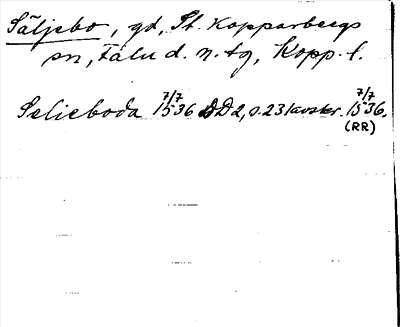 Säljebo, gd, St. Kopparbergs
sn, Falu d. n. tg, Kopp. l.
Selieboda 7/7 1536 DD2, s. 231 avskr. 7/7 1536.
(RR)